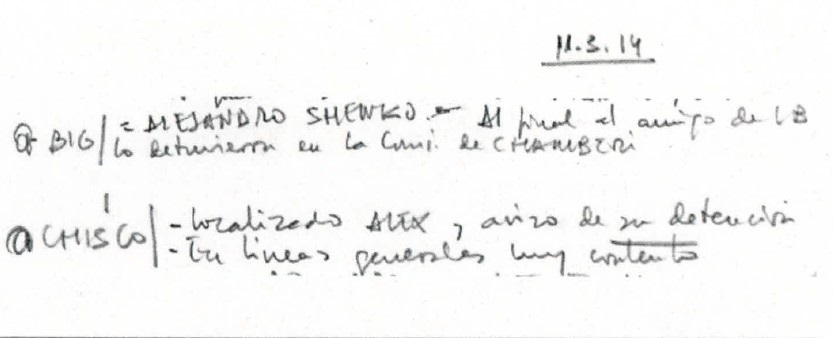 11.3.14
@ BIG/ = ALEJANDRO SHEWKO.- Al final el amigo de LB
lo detuvieron en la Comi. de CHAMBERI
@ CHISCO/ - localizado ALEX y aviso de su detención
- En líneas generales muy contento